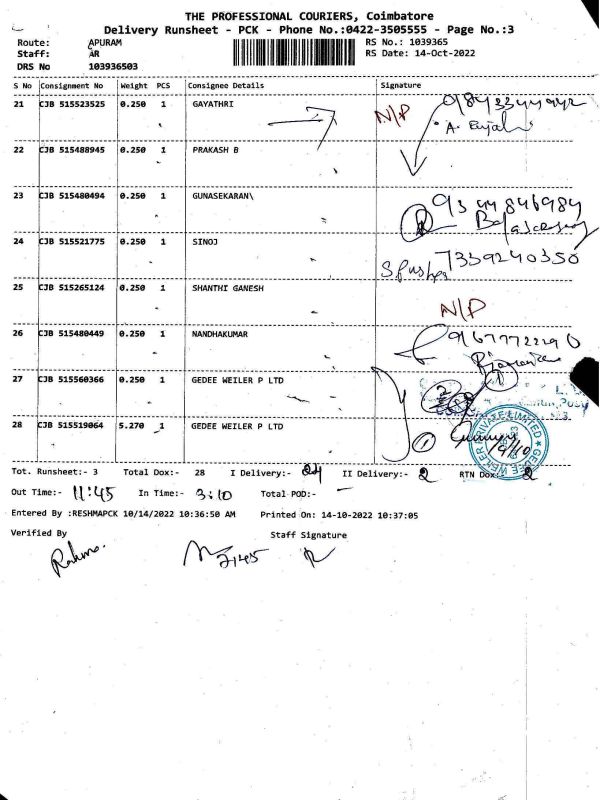 THE PROFESSIONAL COURIERS, Coimbatore
Delivery Runsheet - PCK - Phone No.:0422-3505555 - Page No.:3
Route: APURAM RS No.: 1039365
Staff: AR RS Date: 14-Oct-2022
DRS No 103936503
S No Consignment No Weight PCS Consignee Details Signature
21 CJB 515523525 0.250 1 GAYATHRI N/P
22 CJB 515488945 0.250 1 PRAKASH B
23 CJB 515480494 0.250 1 GUNASEKARAN\ 9344846984
24 CJB 515521775 0.250 1 SINOJ 7339240350
25 CJB 515265124 0.250 1 SHANTHI GANESH N/P
26 CJB 515480449 0.250 1 NANDHAKUMAR
27 CJB 515560366 0.250 1 GEDEE WEILER P LTD
28 CJB 515519064 5.270 1 GEDEE WEILER P LTD 1
GEDEE WEILER PRIVATE LIMITED
Tot. Runsheet:- 3 Total Dox:- 28 I Delivery:- 24 II Delivery:- 2 RTN Dox:- 2
Out Time:- 11:45 In Time:- 3:10 Total POD:- —
Entered By :RESHMAPCK 10/14/2022 10:36:50 AM Printed On: 14-10-2022 10:37:05
Verified By Staff Signature